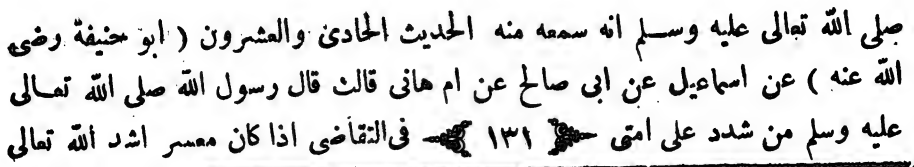 صلى الله تعالى عليه وسلم انه سمعه منه الحديث الحادى والعشرون ( ابو حنيفة رضى
الله عنه ) عن اسماعيل عن ابى صالح عن ام هانى قالت قال رسول الله صلى الله تعالى
عليه وسلم من شدد على امتى ١٣١ فى التقاضى اذا كان معسر اشدد الله تعالى